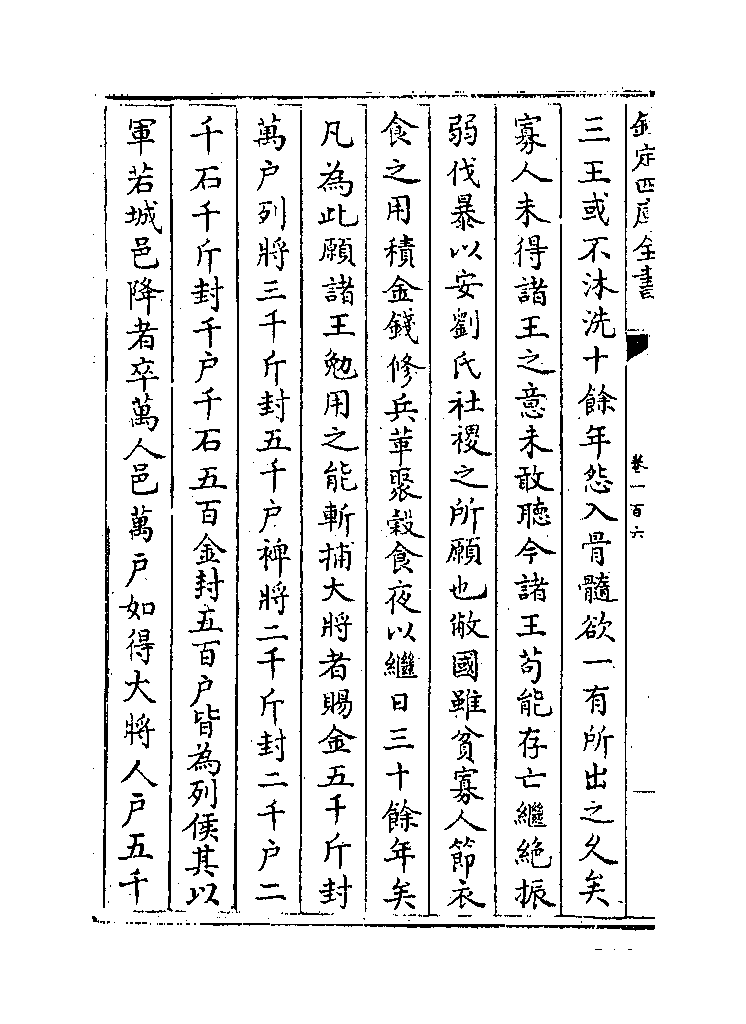 欽定四庫全書
卷一百六
三王或不沐洗十餘年怨入骨髓欲一有所出之久矣
寡人未得諸王之意未敢聽今諸王茍能存亡繼絶振
弱伐暴以安劉氏社稷之所願也敝國雖貧寡人節衣
食之用積金錢修兵革聚穀食夜以繼日三十餘年矣
凡為此願諸王勉用之能斬捕大將者賜金五千斤封
萬户列將三千斤封五千户裨將二千斤封二千户二
千石千斤封千户千石五百金封五百户皆為列侯其以
軍若城邑降者卒萬人邑萬户如得大將人户五千